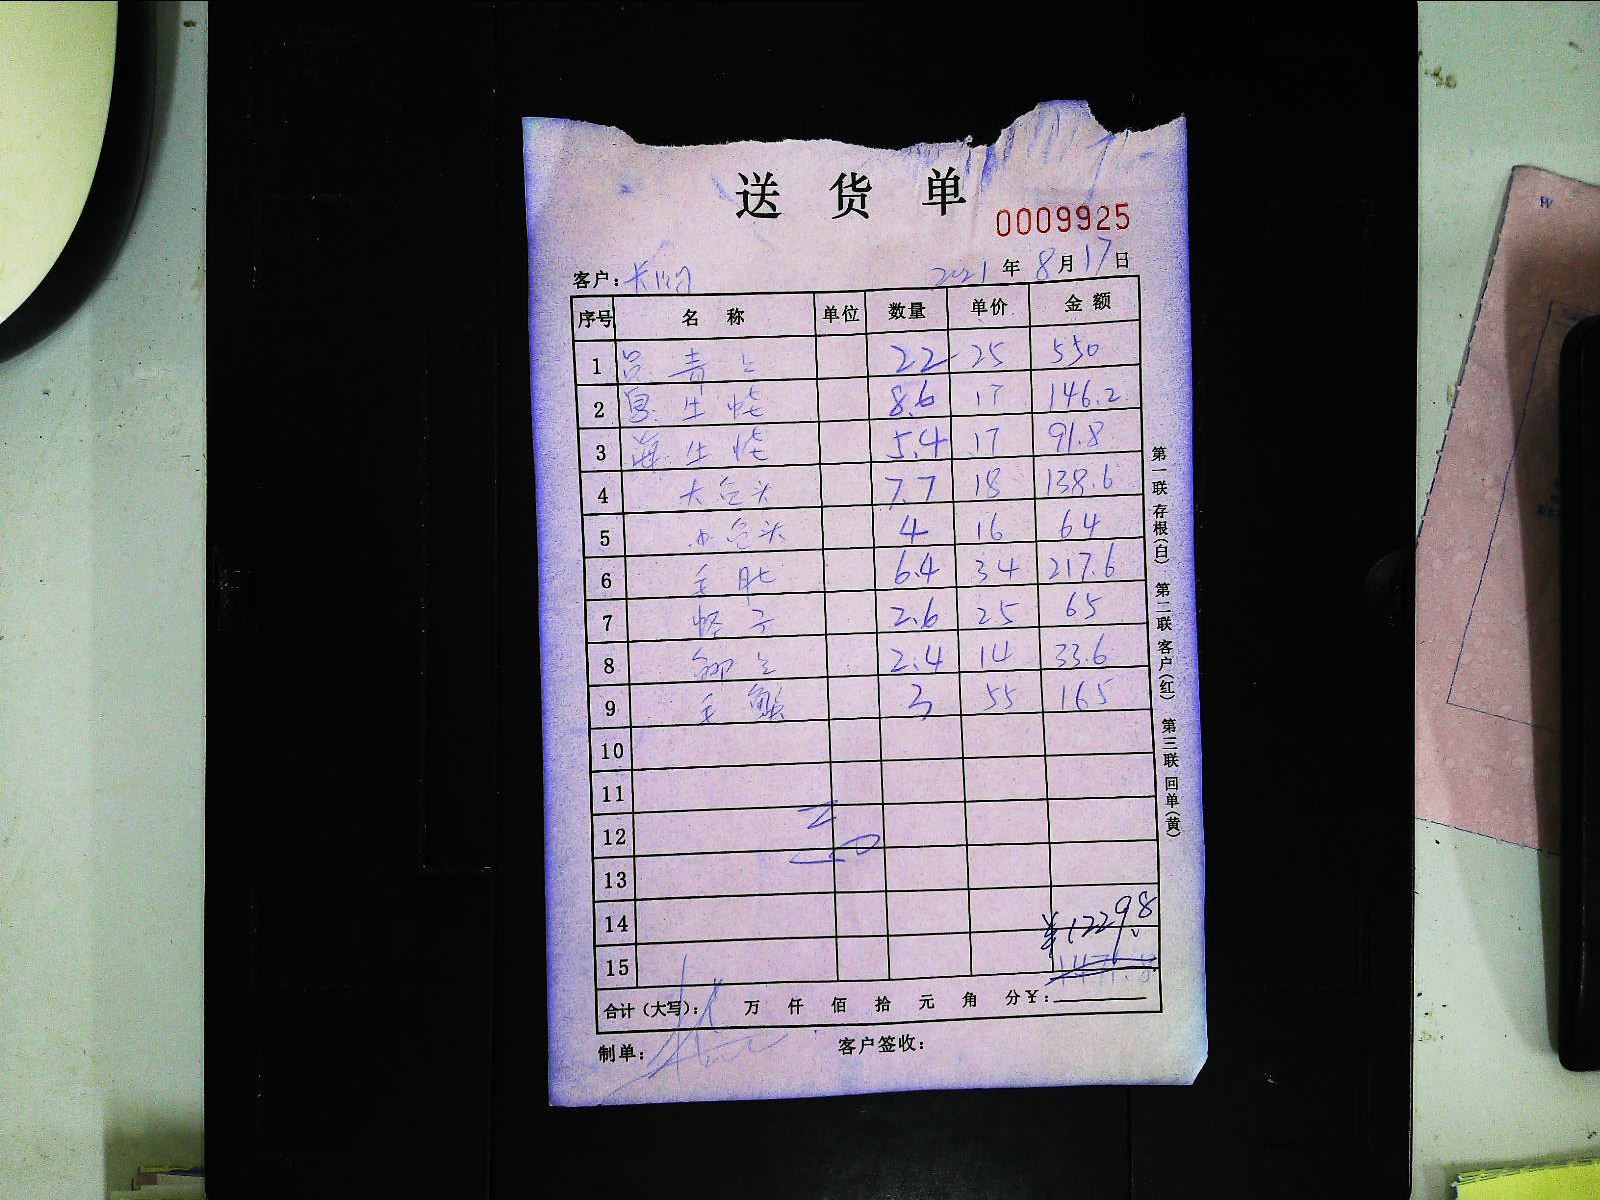 送货单
0009925
客户： 2021年8月17日
序号 名称 单位 数量 单价 金额
1 22 25 550
2 生蚝 8.6 17 146.2
3 生蚝 5.4 17 91.8
4 大仓头 7.7 18 138.6
5 小仓头 4 16 64
6 毛肚 6.4 34 217.6
7 蛏子 2.6 25 65
8 2.4 14 33.6
9 毛蟹 3 55 165
10
11
12
13
14 ¥1229.8
15
合计（大写）： 万 仟 佰 拾 元 角 分¥：
制单： 客户签收：
第一联 存根（白） 第二联 客户（红） 第三联 回单（黄）